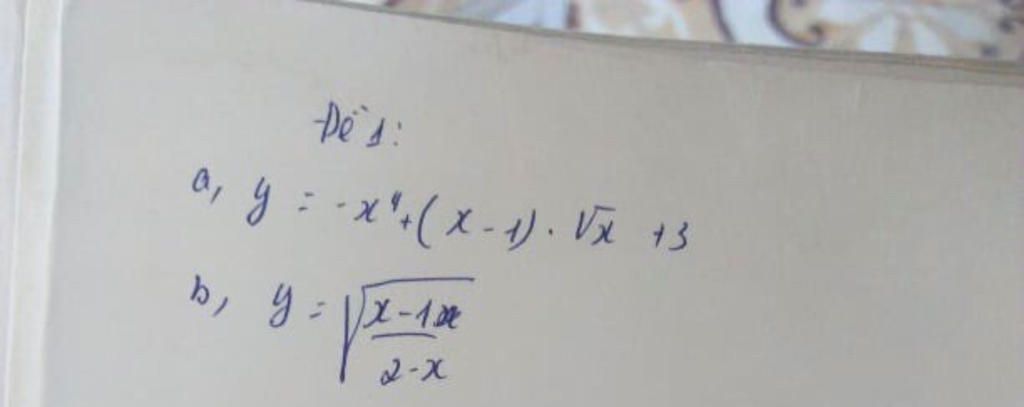 Đề 1:
a, y = -x⁴ + (x - 1) . √x + 3
b, y = √((x - 1)/(2 - x))